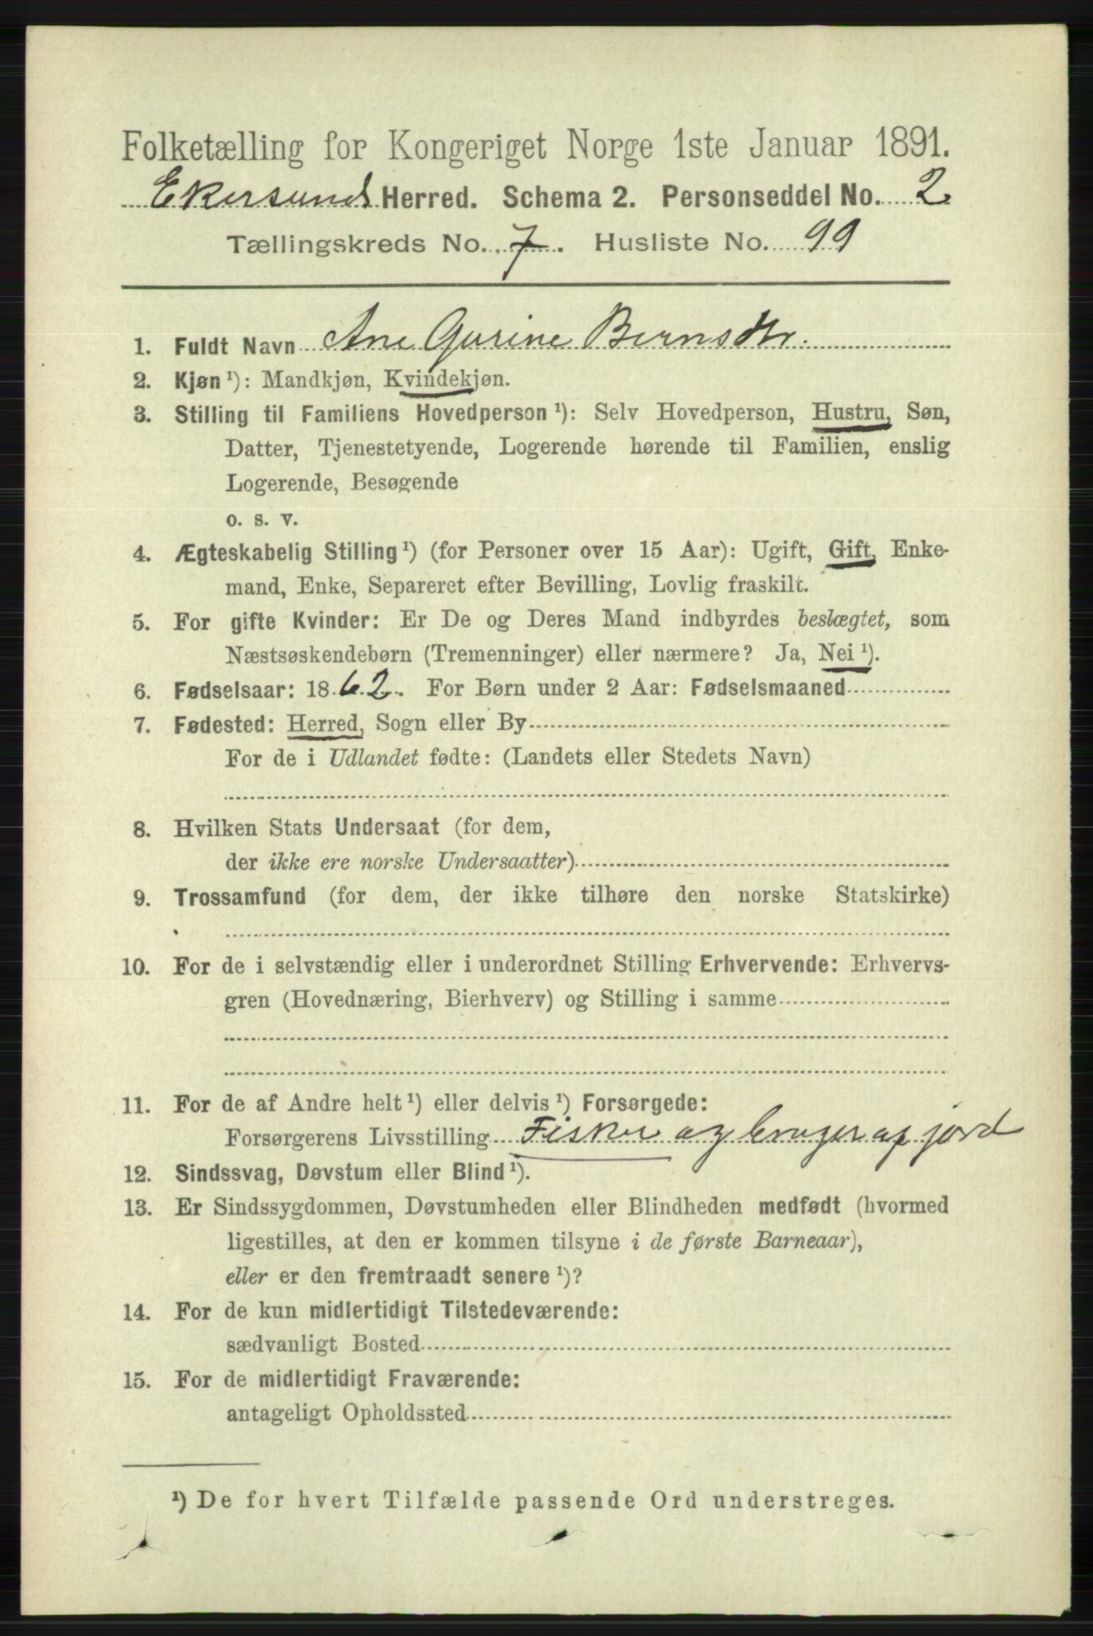 Folketælling for Kongeriget Norge 1ste Januar 1891.
Ekersunds Herred. Schema 2. Personseddel No. 2
Tællingskreds No. 7. Husliste No. 99
1. Fuldt Navn Ane Gurine Bernsdtr.
2. Kjøn ¹): Mandkjøn, Kvindekjøn.
3. Stilling til Familiens Hovedperson ¹): Selv Hovedperson, Hustru, Søn,
Datter, Tjenestetyende, Logerende hørende til Familien, enslig
Logerende, Besøgende
o. s. v.
4. Ægteskabelig Stilling ¹) (for Personer over 15 Aar): Ugift, Gift, Enke-
mand, Enke, Separeret efter Bevilling, Lovlig fraskilt.
5. For gifte Kvinder: Er De og Deres Mand indbyrdes beslægtet, som
Næstsøskendebørn (Tremenninger) eller nærmere? Ja, Nei ¹).
6. Fødselsaar: 1862. For Børn under 2 Aar: Fødselsmaaned
7. Fødested: Herred, Sogn eller By
For de i Udlandet fødte: (Landets eller Stedets Navn)
8. Hvilken Stats Undersaat (for dem,
der ikke ere norske Undersaatter)
9. Trossamfund (for dem, der ikke tilhøre den norske Statskirke)
10. For de i selvstændig eller i underordnet Stilling Erhvervende: Erhvervs-
gren (Hovednæring, Bierhverv) og Stilling i samme
11. For de af Andre helt ¹) eller delvis ¹) Forsørgede:
Forsørgerens Livsstilling Fisker og bruger af jord
12. Sindssvag, Døvstum eller Blind ¹).
13. Er Sindssygdommen, Døvstumheden eller Blindheden medfødt (hvormed
ligestilles, at den er kommen tilsyne i de første Barneaar),
eller er den fremtraadt senere ¹)?
14. For de kun midlertidigt Tilstedeværende:
sædvanligt Bosted
15. For de midlertidigt Fraværende:
antageligt Opholdssted
¹) De for hvert Tilfælde passende Ord understreges.